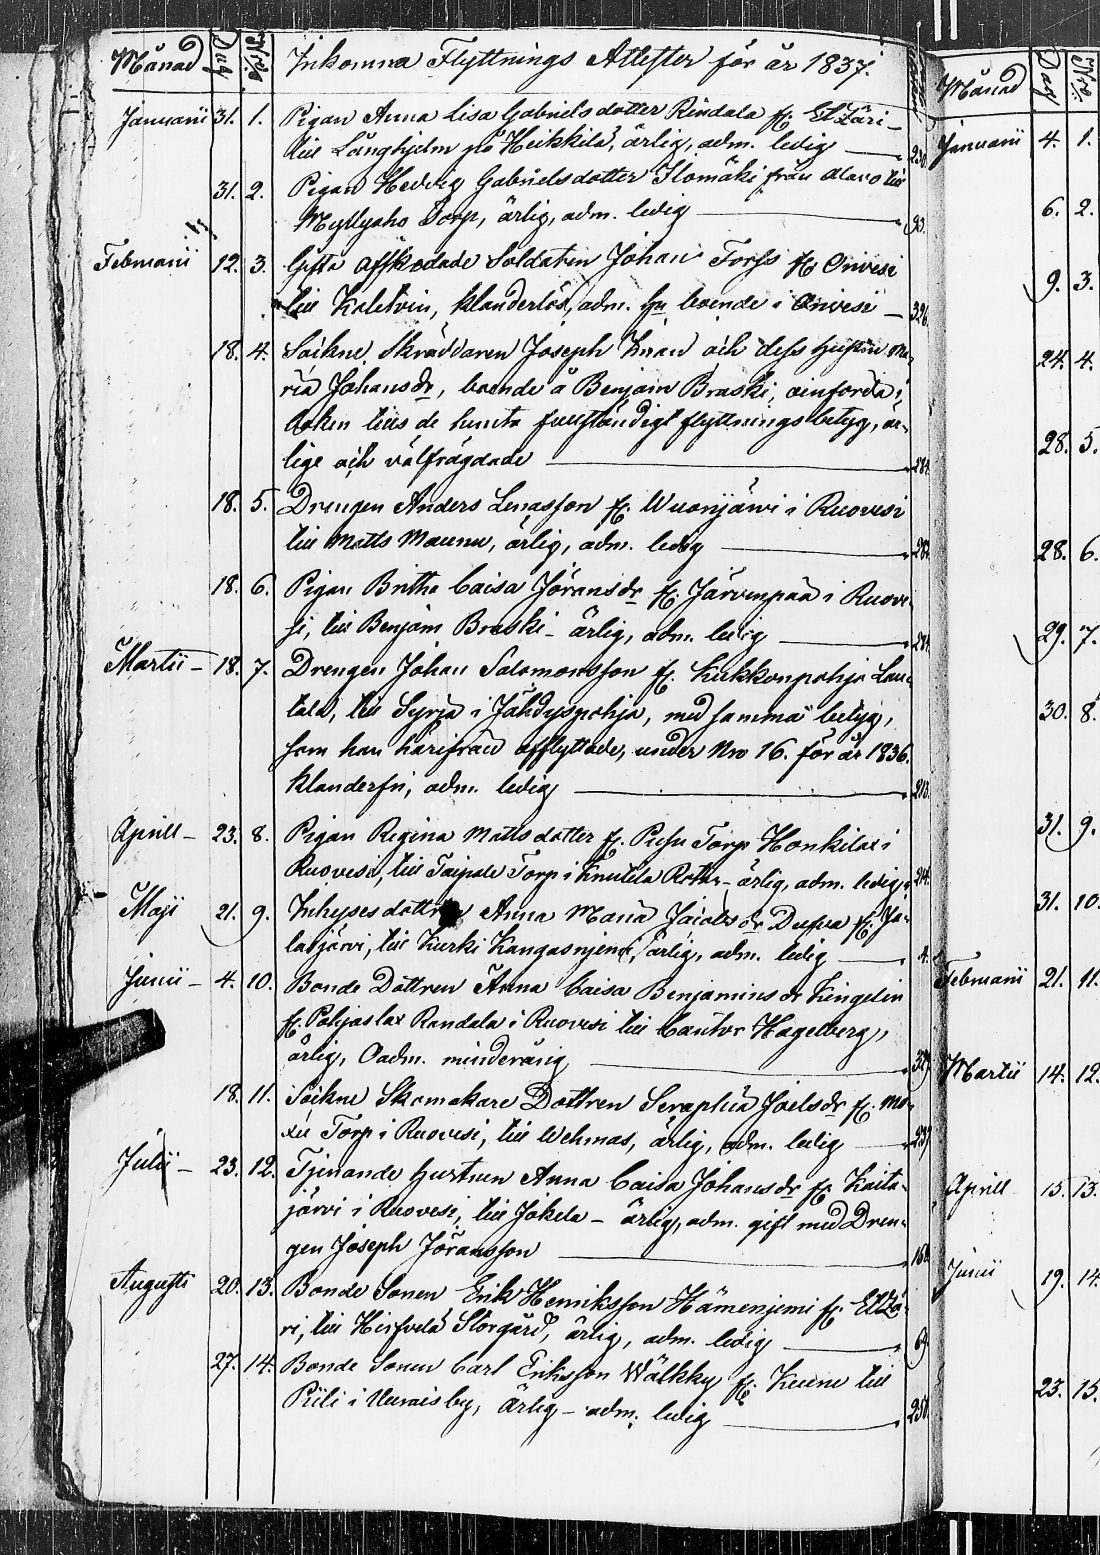 Månad Dag N:ro Inkomna Flyttnings Attester för år 1837.
Januarii 31. 1. Pigan Anna Lisa Gabrielsdotter Rindala fr. Etzäri
till Långhjelm på Heikkilä, ärlig, adm. ledig — 230.
31. 2. Pigan Hedvig Gabrielsdotter Ilomäki från Alavo till
Myllyaho Torp, ärlig, adm. ledig — 93.
Februarii 12. 3. Gifta Afskedade Soldaten Johan Forss fr. Orivesi
till Kaleton, klanderlös, adm. hu boende i Orivesi — 326.
18. 4. Sockne Skräddaren Joseph Knau och dess hustru Ma-
ria Johansdr, boende å Benjam Braski, införda i
boken tills de hunnit fullständigt flyttningsbetyg, är-
lige och välfrägdade — 284.
18. 5. Drengen Anders Lenasson fr. Wuorijärvi i Ruovesi
till Matts Maunu, ärlig, adm. ledig — 282.
18. 6. Pigan Britha Caisa Jöransdr fr. Järvenpää i Ruove-
si, till Benjam Braski – ärlig, adm. ledig — 284.
Martii – 18. 7. Drengen Johan Salomonsson fr. Kukkonpohja Lau-
tala, till Syrjä i Jähdyspohja, med samma betyg,
som han härifrån afflyttade, under Nro 16. för år 1836.
klanderfri, adm. ledig — 213.
Aprill – 23. 8. Pigan Regina Mattsdotter fr. Torp Honkilax i
Ruovesi, till Taipale Torp i Knuutila Rothe – ärlig, adm. ledig, 214.
Maji 21. 9. Inhysesdottren Anna Maria Jacobsdr Dufva fr. Ja-
lasjärvi, till Kurki Kangasniemi, ärlig, adm. ledig — 4.
Junii – 4. 10. Bonde Dottren Anna Caisa Benjaminsdr Kingelin
fr. Pohjaslax Randala i Ruovesi till Cantor Hagelberg,
ärlig, Oadm. minderårig — 329.
18. 11. Sockne Skomakare Dottren Seraphia Joelsdr fr. Mo-
Torp i Ruovesi, till Wehmas, ärlig, adm. ledig — 237.
Julii – 23. 12. Tjenande hustrun Anna Caisa Johansdr fr. Kaita-
järvi i Ruovesi, till Jokela – ärlig, adm. gift med Dren-
gen Joseph Jöransson — 164.
Augusti 20. 13. Bonde Sonen Erik Henriksson Hämenjemi fr. Etzä-
ri, till Hirfvelä Storgård, ärlig, adm. ledig — 69.
27. 14. Bonde Sonen Carl Eriksson Wälkky fr. Keuru till
Riili i Wirroisby, ärlig – adm. ledig — 258.
Månad Dag N:ro
Januarii 4. 1.
6. 2.
9. 3.
24. 4.
28. 5.
28. 6.
29. 7.
30. 8.
31. 9.
31. 10.
Februarii 21. 11.
Martii 14. 12.
Aprill 15. 13.
Junii 19. 14.
23. 15.